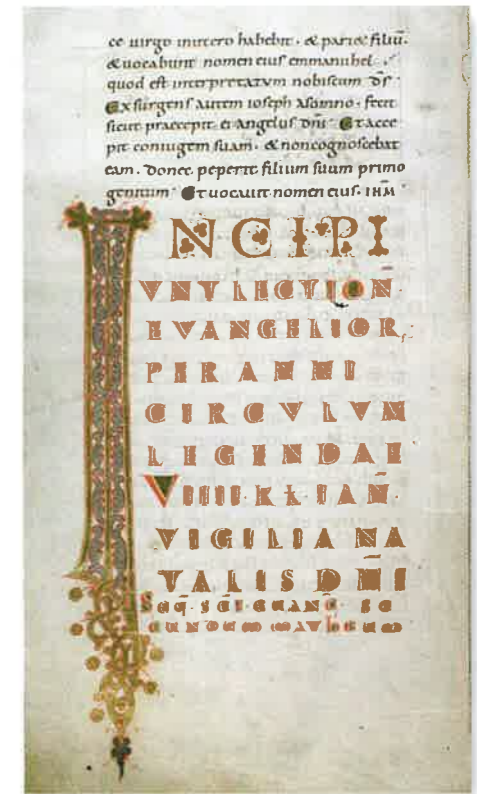 ce uirgo inutero habebit · & pari& filiū·
& uocabunt nomen eius emmanuhel ·
quod est interpretatum nobiscum d̄s ·
Exsurgens autem ioseph asomno · fecit
sicut praecepit ei angelus dn̄i · Et acce
pit coniugem suam · & noncognoscebat
eam · donec peperit filium suum primo
genitum · Et uocauit nomen eius · IHM̄
INCIPI
VNT LECTION̄
EVANGELIOR,
PER ANNI
CIRCVLVM
LEGENDAE
VIIII· KL· IAN̄·
VIGILIA NA
TALIS DN̄I
SEQ̄· SC̄I· EUANḠ· SE
CUNDUM MATHEUM